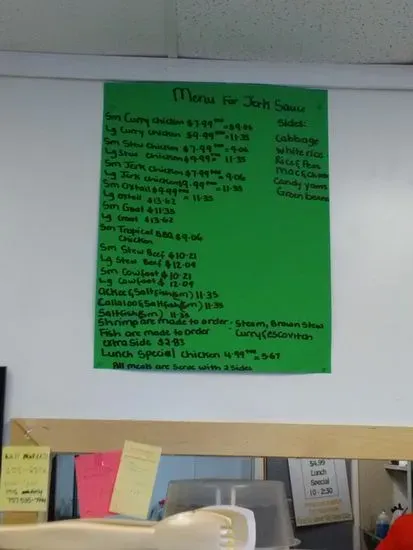 Menu For Jerk Sauce
Sm Curry chicken $7.99 = $9.06
Lg Curry chicken $9.99 = 11.35
Sm Stew chicken $7.99 = 9.06
Lg Stew chicken $9.99 = 11.35
Sm Jerk chicken $7.99 = 9.06
Lg Jerk chicken 9.99 = 11.35
Sm Oxtail $9.99 = 11.35
Lg oxtail $13.62
Sm Goat $11.35
Lg Goat $13.62
Sm Tropical BBQ $9.06
Chicken
Sm Stew Beef $10.21
Lg Stew Beef $12.09
Sm Cowfoot $10.21
Lg Cowfoot $12.09
Ackee & Saltfish (sm) 11.35
Callaloo & Saltfish (sm) 11.35
Saltfish (sm) 11.35
Shrimp are made to order - Steam, Brown Stew
Fish are made to order Curry, Escovitch
extra Side $2.83
Lunch Special Chicken 4.99 = 5.67
All meals are Serve with 2 Sides
Sides:
Cabbage
White rice
Rice & Peas
Mac & cheese
Candy yams
Green beans
$4.99
Lunch
Special
10-2:30